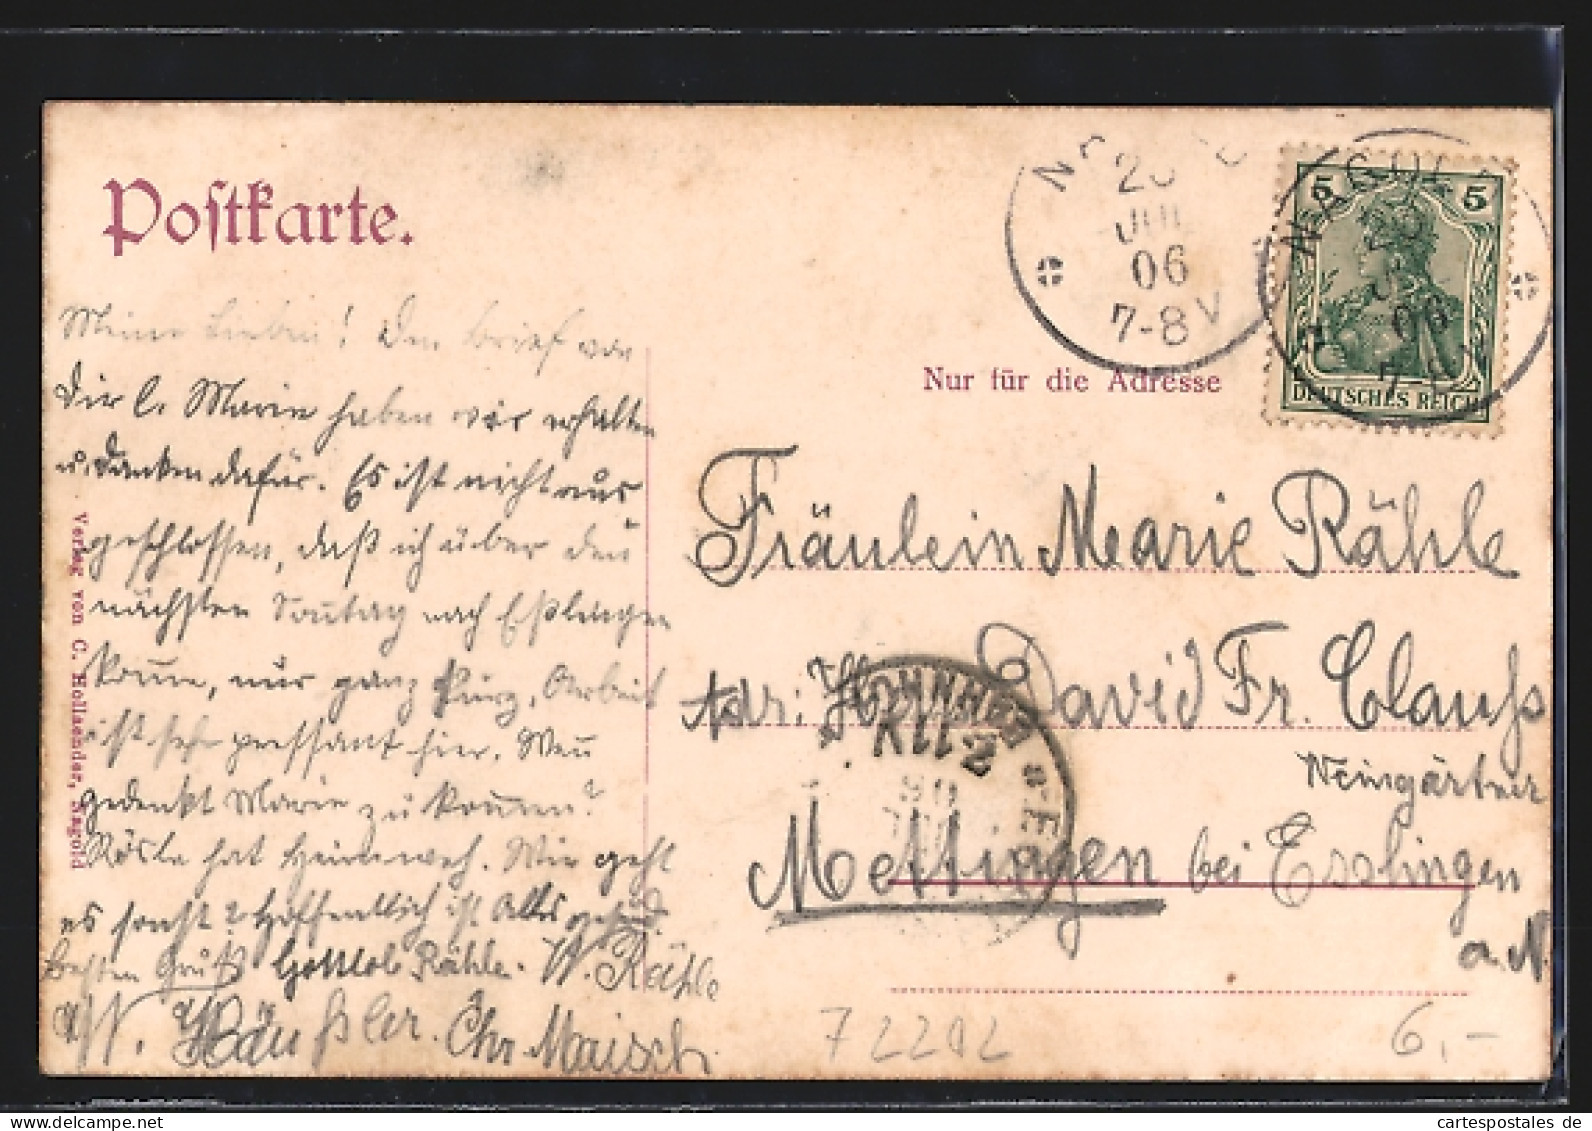 Postkarte.
Meine Lieben! Den Brief von
Dir l. Marie haben wir erhalten
u. danken dafür. Es ist nicht aus
geschlossen, daß ich über den
nächsten Sonntag nach Eßlingen
komme, nur ganz kurz, Arbeit
ist sehr pressant hier. Wann
gedenkt Marie zu kommen?
Rösle hat Heimweh. Wie geht
es sonst? Hoffentlich ist Alles gesund.
Besten Gruß Gottlob Rähle. W. Rähle
W. Häußler. Chr Maisch.
Verlag von C. Hollaender, Nagold
NAGOLD
JUL
06
7-8V
NAGOLD
06
7-8
5 5
DEUTSCHES REICH
Nur für die Adresse
Fräulein Marie Rähle
Adr: Herrn David Fr. Clauß
Weingärtner
Mettingen bei Esslingen
a. N.
72202
6,-
www.cartespostales.de